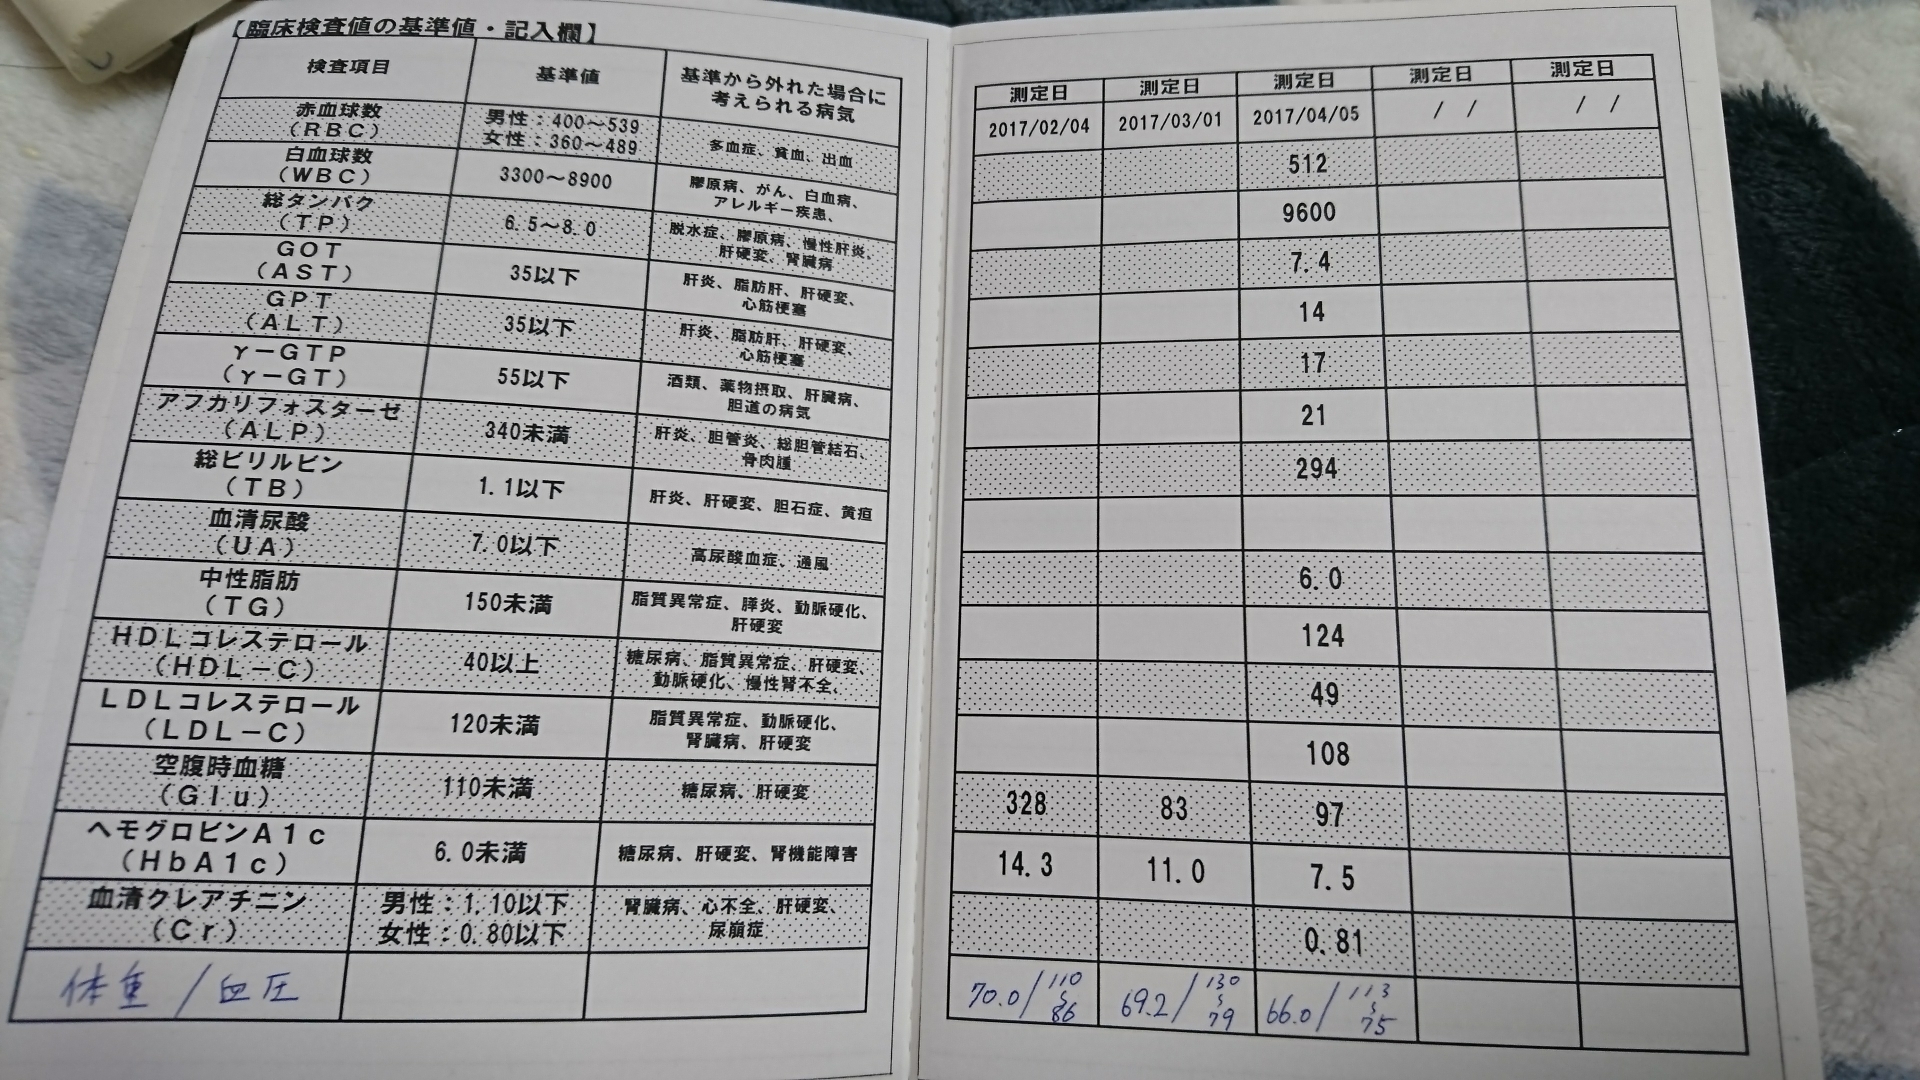 【臨床検査値の基準値・記入欄】
検査項目
基準値
基準から外れた場合に
考えられる病気
赤血球数
(RBC)
男性：400～539
女性：360～489
多血症、貧血、出血
白血球数
(WBC)
3300～8900
膠原病、がん、白血病、
アレルギー疾患、
総タンパク
(TP)
6.5～8.0
脱水症、膠原病、慢性肝炎、
肝硬変、腎臓病
GOT
(AST)
35以下
肝炎、脂肪肝、肝硬変、
心筋梗塞
GPT
(ALT)
35以下
肝炎、脂肪肝、肝硬変、
心筋梗塞
γ－GTP
(γ－GT)
55以下
酒類、薬物摂取、肝臓病、
胆道の病気
アフカリフォスターゼ
(ALP)
340未満
肝炎、胆管炎、総胆管結石、
骨肉腫
総ビリルビン
(TB)
1.1以下
肝炎、肝硬変、胆石症、黄疸
血清尿酸
(UA)
7.0以下
高尿酸血症、通風
中性脂肪
(TG)
150未満
脂質異常症、膵炎、動脈硬化、
肝硬変
HDLコレステロール
(HDL－C)
40以上
糖尿病、脂質異常症、肝硬変、
動脈硬化、慢性腎不全、
LDLコレステロール
(LDL－C)
120未満
脂質異常症、動脈硬化、
腎臓病、肝硬変
空腹時血糖
(Glu)
110未満
糖尿病、肝硬変
ヘモグロビンA1c
(HbA1c)
6.0未満
糖尿病、肝硬変、腎機能障害
血清クレアチニン
(Cr)
男性：1.10以下
女性：0.80以下
腎臓病、心不全、肝硬変、
尿崩症
体重／血圧
測定日 測定日 測定日 測定日 測定日
2017/02/04 2017/03/01 2017/04/05 / / / /
512
9600
7.4
14
17
21
294
6.0
124
49
108
328 83 97
14.3 11.0 7.5
0.81
70.0/110～86 69.2/130～79 66.0/113～75